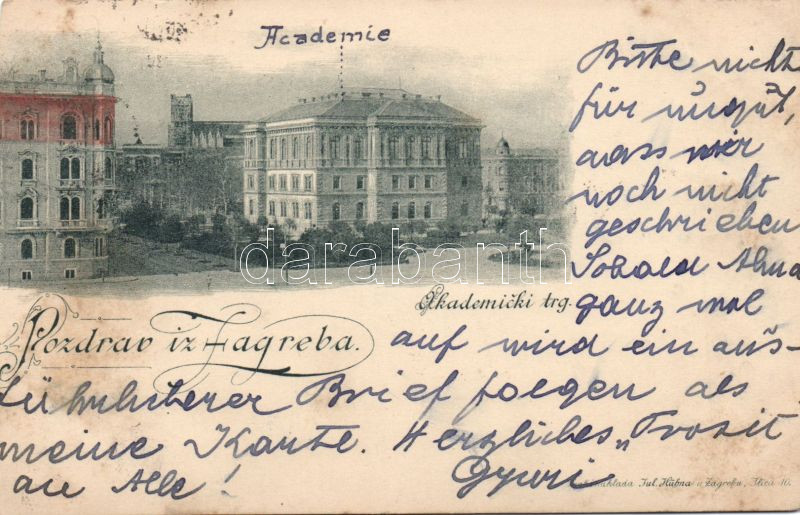 Academie
Bitte nicht
für ungut,
dass wir
noch nicht
geschrieben
Sobald
ganz mal
auf wird ein aus-
führlicherer Brief folgen als
meine Karte. Herzliches „Prosit
an Alle! Gyuri
Akademički trg.
Pozdrav iz Zagreba.
darabanth
Jul. Hühna u Zagrebu, Ilica 10.